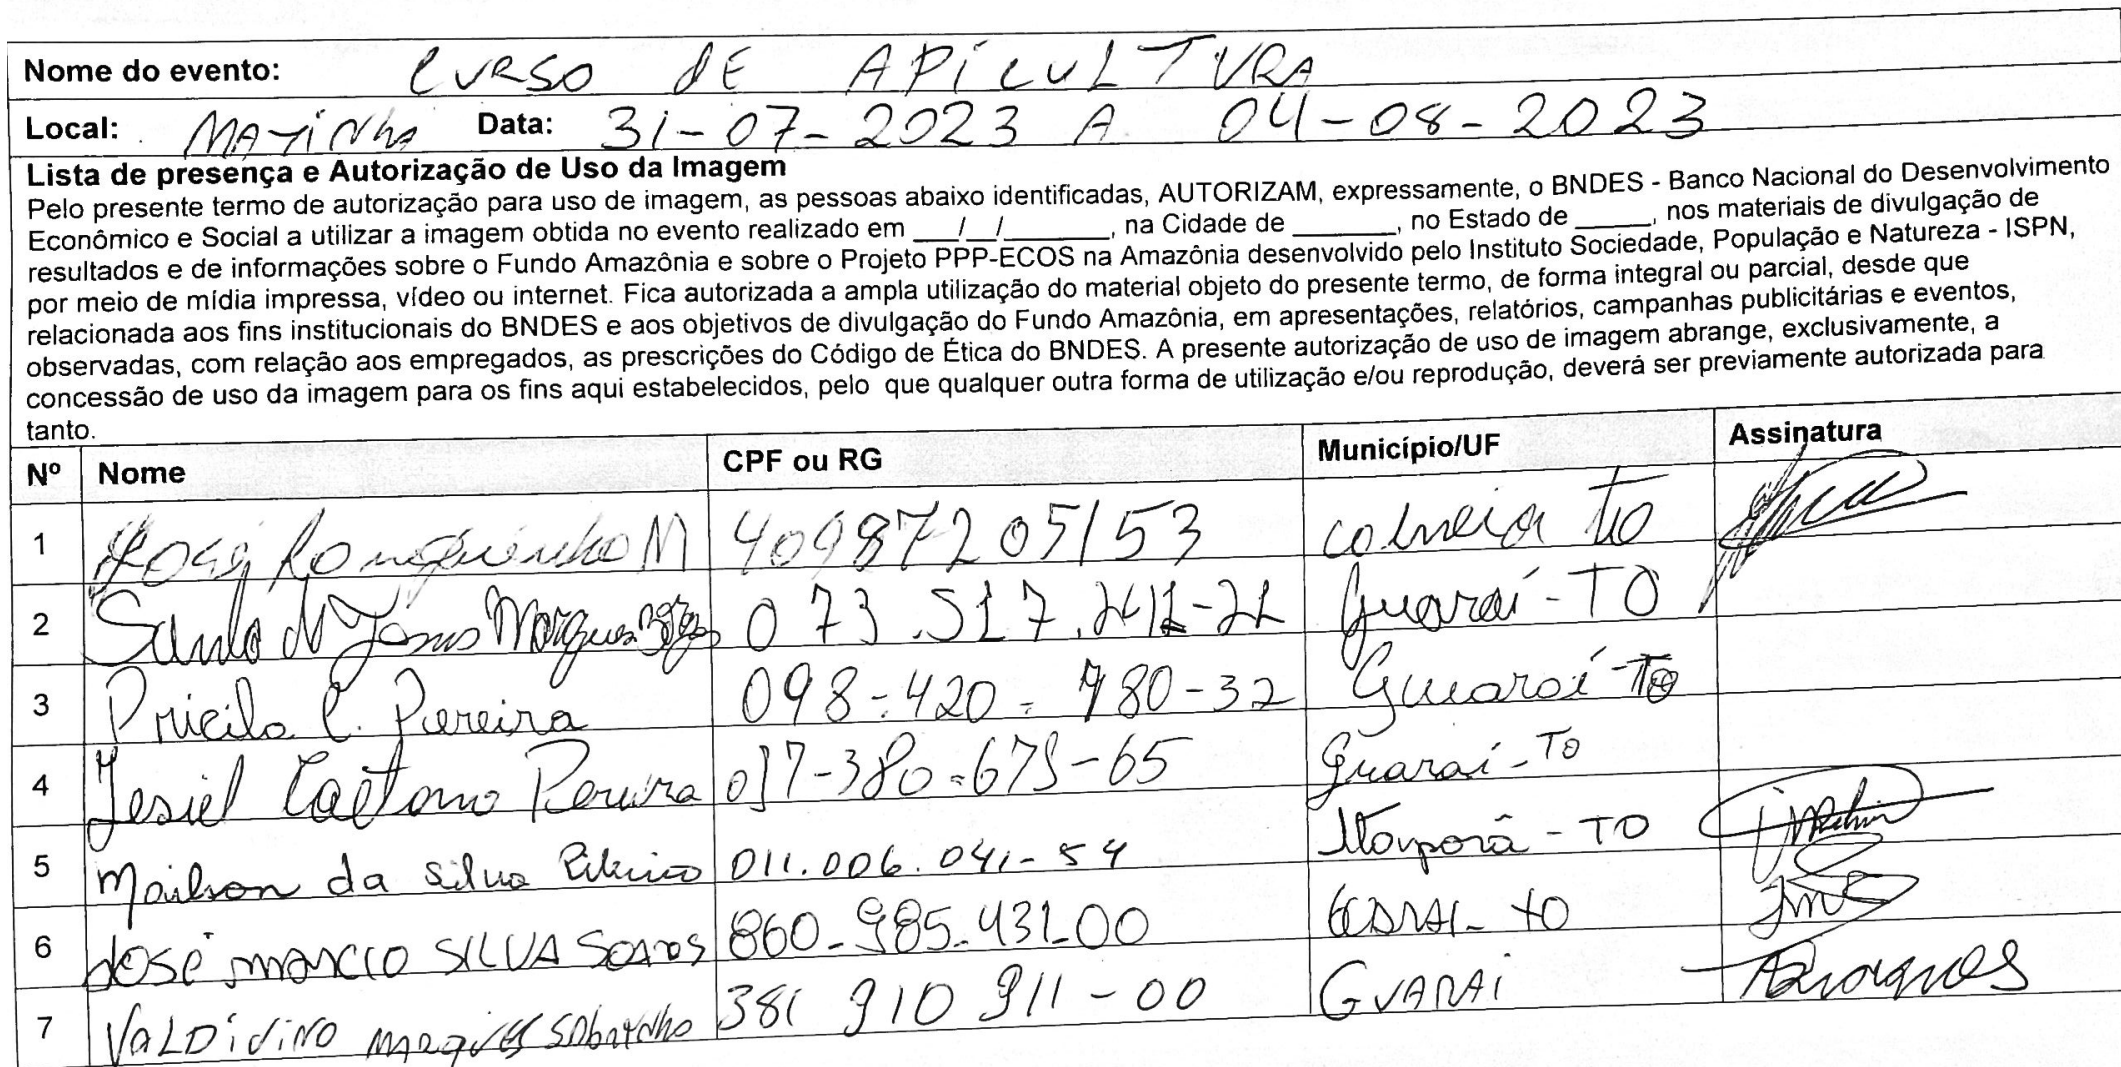 Nome do evento: CURSO DE APÍCULTURA
Local: MATINHA Data: 31-07-2023 A 04-08-2023
Lista de presença e Autorização de Uso da Imagem
Pelo presente termo de autorização para uso de imagem, as pessoas abaixo identificadas, AUTORIZAM, expressamente, o BNDES - Banco Nacional do Desenvolvimento
Econômico e Social a utilizar a imagem obtida no evento realizado em ___/__/_______, na Cidade de _______, no Estado de _____, nos materiais de divulgação de
resultados e de informações sobre o Fundo Amazônia e sobre o Projeto PPP-ECOS na Amazônia desenvolvido pelo Instituto Sociedade, População e Natureza - ISPN,
por meio de mídia impressa, vídeo ou internet. Fica autorizada a ampla utilização do material objeto do presente termo, de forma integral ou parcial, desde que
relacionada aos fins institucionais do BNDES e aos objetivos de divulgação do Fundo Amazônia, em apresentações, relatórios, campanhas publicitárias e eventos,
observadas, com relação aos empregados, as prescrições do Código de Ética do BNDES. A presente autorização de uso de imagem abrange, exclusivamente, a
concessão de uso da imagem para os fins aqui estabelecidos, pelo que qualquer outra forma de utilização e/ou reprodução, deverá ser previamente autorizada para
tanto.
Nº Nome CPF ou RG Município/UF Assinatura
1 M 40987205153 colmeia to
2 de Jesus Marques Guaraí-TO
3 Pricila C. Pereira 098-420-780-32 Guaraí-To
4 Jesiel Caetano Pereira 017-380-675-65 Guaraí-To
5 Mailson da Silva Ribeiro 011.006.041-54 Itaporã - TO
6 JOSÉ MARCIO SILVA SOARES 860-985-431-00 TO
7 VALDÍVINO MARQUES SOBRINHO 381 910 911-00 GUARAÍ Marques